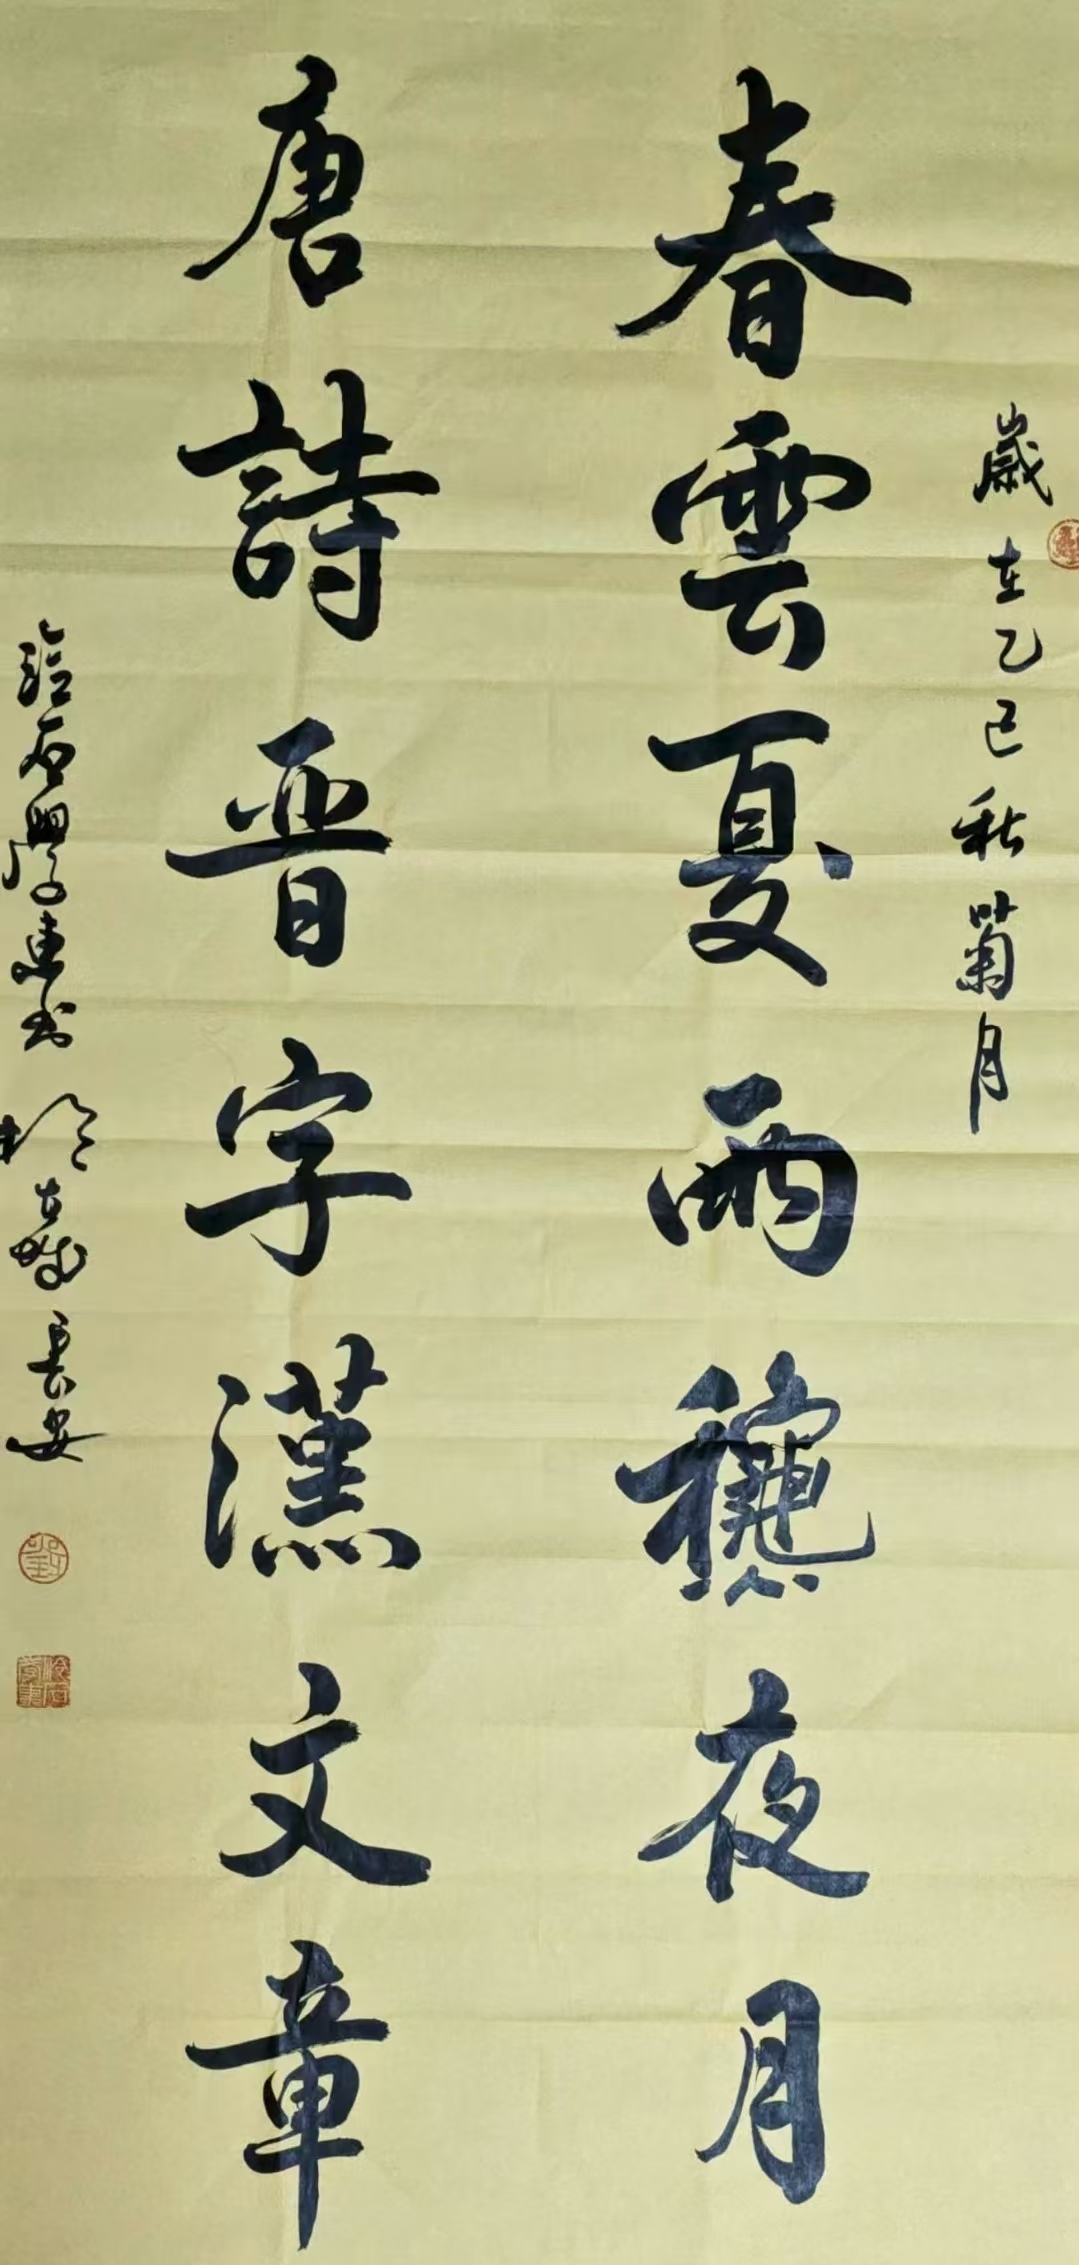 歲在乙巳秋菊月
春雲夏雨龝夜月
唐詩晉字漢文章
石學東書於古都長安